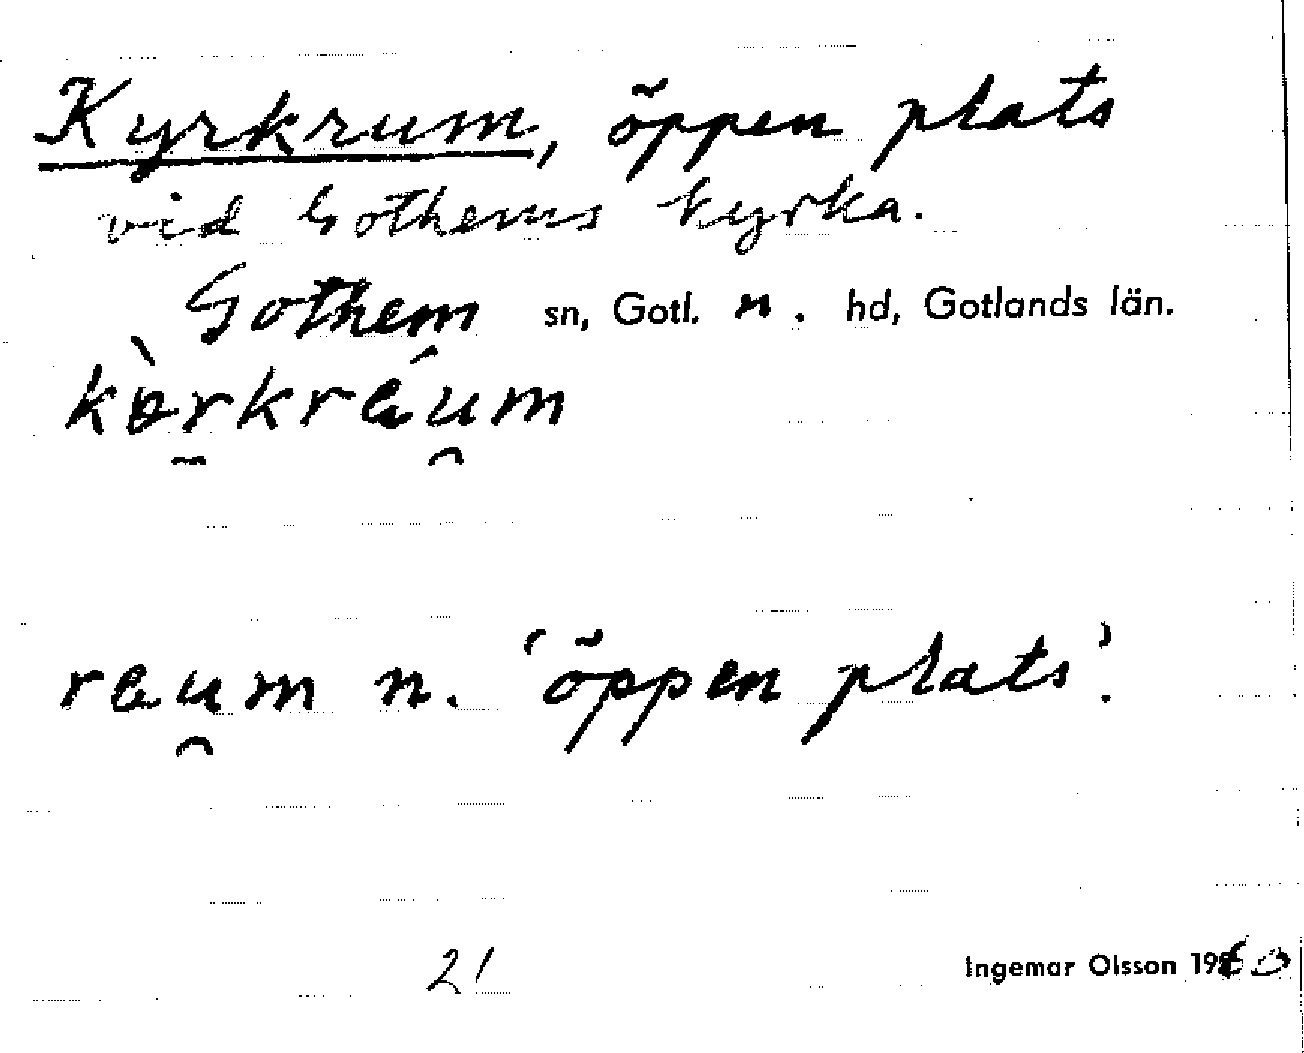 Kyrkrum, öppen plats
vid Gothems kyrka.
Gothem sn, Gotl. n. hd, Gotlands län.
kò̵r̠kréu̯m
reu̯m n. 'öppen plats'.
21 Ingemar Olsson 1960